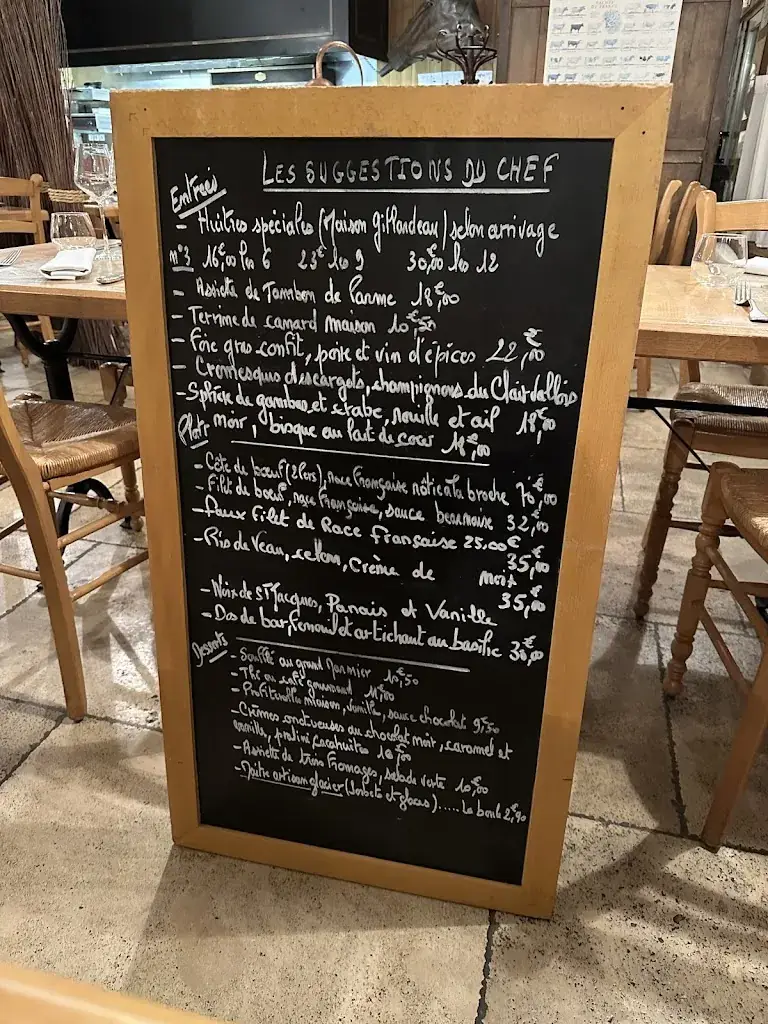 LES SUGGESTIONS DU CHEF
Entrées
- Huîtres spéciales (Maison Gillardeau) selon arrivage
n°3 16€,00 les 6 23€ les 9 30€,00 les 12
- Assiette de Jambon de Parme 18€,00
- Terrine de canard maison 10€,50
- Foie gras confit, poire et vin d'épices 22€,00
- Cromesquis d'escargots, champignons du Clair de
- Sphère de gambas et crabe, nouille et ail 18€,00
noir, bisque au lait de coco 18€,00
Plats
- Côte de boeuf (2 Pers), race française rôtie à la broche 76€,00
- Filet de boeuf, race française, sauce bearnaise 32€,00
- Faux Filet de Race française 25,00€
- Ris de Veau, Crème de 35€,00
- Noix de St Jacques, Panais et Vanille 35€,00
- Dos de bar, fenouil et artichaut au basilic 30€,00
Desserts
- Soufflé au grand Marnier 10€,50
- Thé ou café gourmand 11€,00
- Profiterolle maison, vanille, sauce chocolat 9€,50
- Crèmes onctueuses au chocolat noir, caramel et
vanille, praliné cacahuètes 10€,00
- Assiette de trois fromages, salade verte 10€,00
- Maître artisan glacier (sorbets et glaces)..... La boule 2€,90